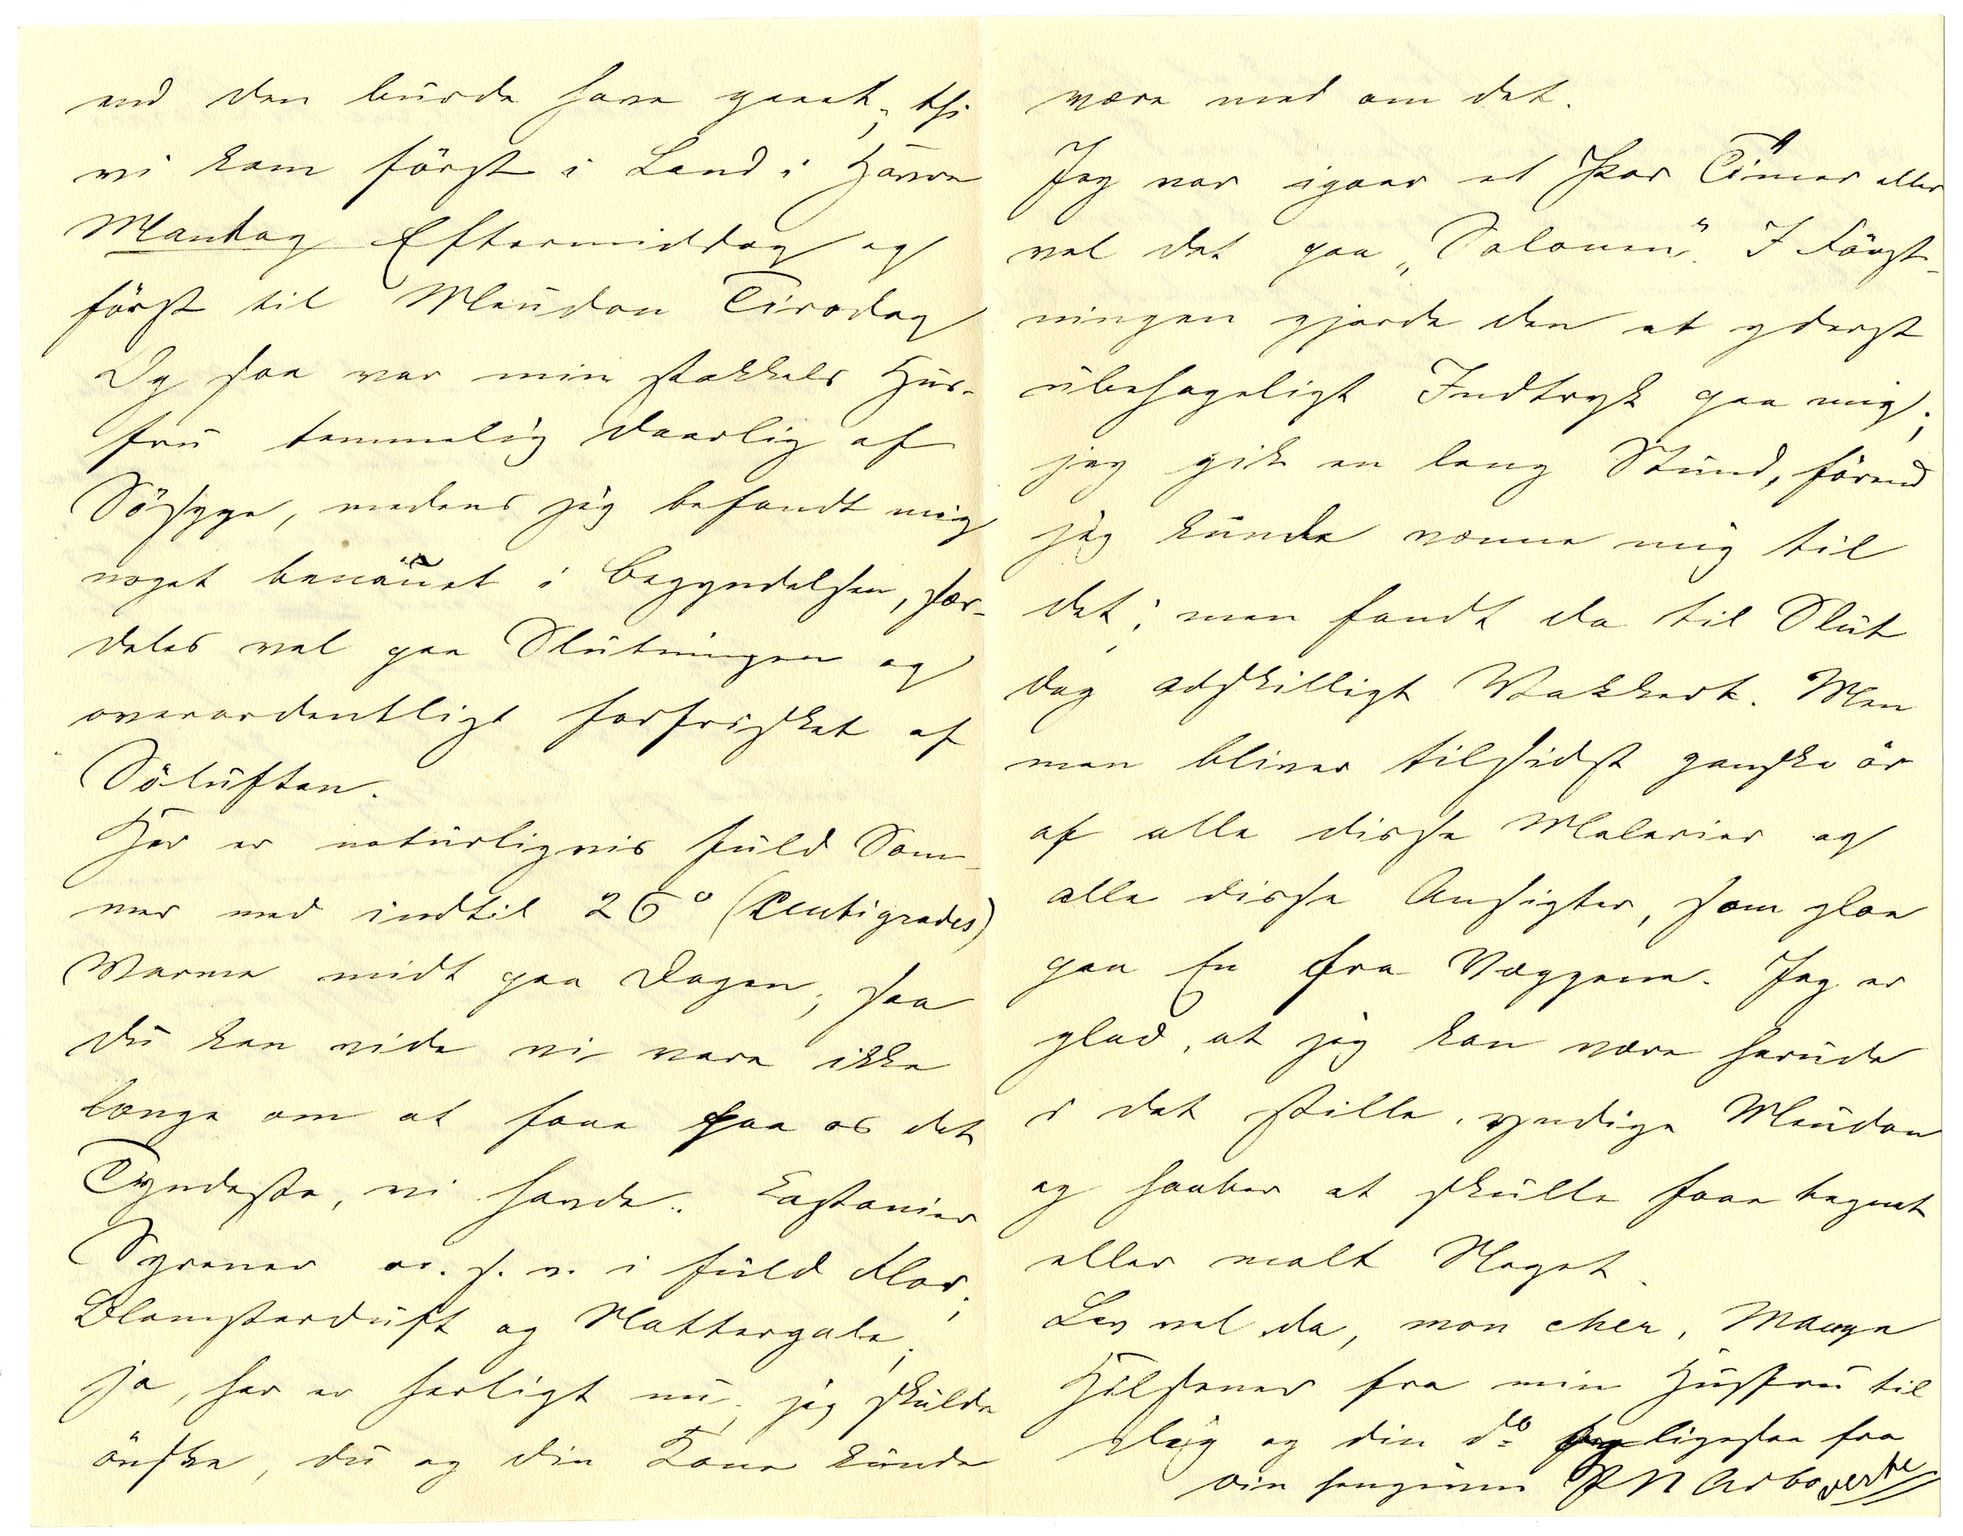 end den burde have gaaet, thi
vi kom först i Land i Havre
Mandag Eftermiddag og
först til Meudon Tirsdag
Og saa var min stakkels Hus-
fru temmelig daarlig af
Sösyge, medens jeg befandt mig
noget benauet i Begyndelsen, sær-
deles vel paa Slutningen og
overordentligt forfrisket af
Söluften.
Her er naturligvis fuld Som-
mer med indtil 26° (Centigrades)
Varme midt paa Dagen, saa
du kan vide vi vare ikke
længe om at faae paa os det
Tyndeste, vi havde. Kastanier
Syrener o. s. v. i fuld Flor;
Blomsterduft og Nattergale;
ja, her er herligt nu; jeg skulde
önske, du og din Kone kunde
være med om det.
Jeg var igaar et Par Timer eller
vel det paa „Salonen". I Först-
ningen gjorde den et yderst
ubehageligt Indtryk paa mig;
jeg gik en lang Stund, förend
jeg kunde vænne mig til
det; men fandt da til Slut
dog adskilligt Vakkert. Men
man bliver tilsidst ganske ör
af alle disse Malerier og
alle disse Ansigter, som gloe
paa En fra Væggene. Jeg er
glad, at jeg kan være herude
i det stille, yndige Meudon
og haaber at skulle faae tegnet
eller malt Noget.
Lev vel da, mon cher, Mange
Hilsener fra min Husfru til
dig og din do ligesaa fra
din hengivne P N Arbo